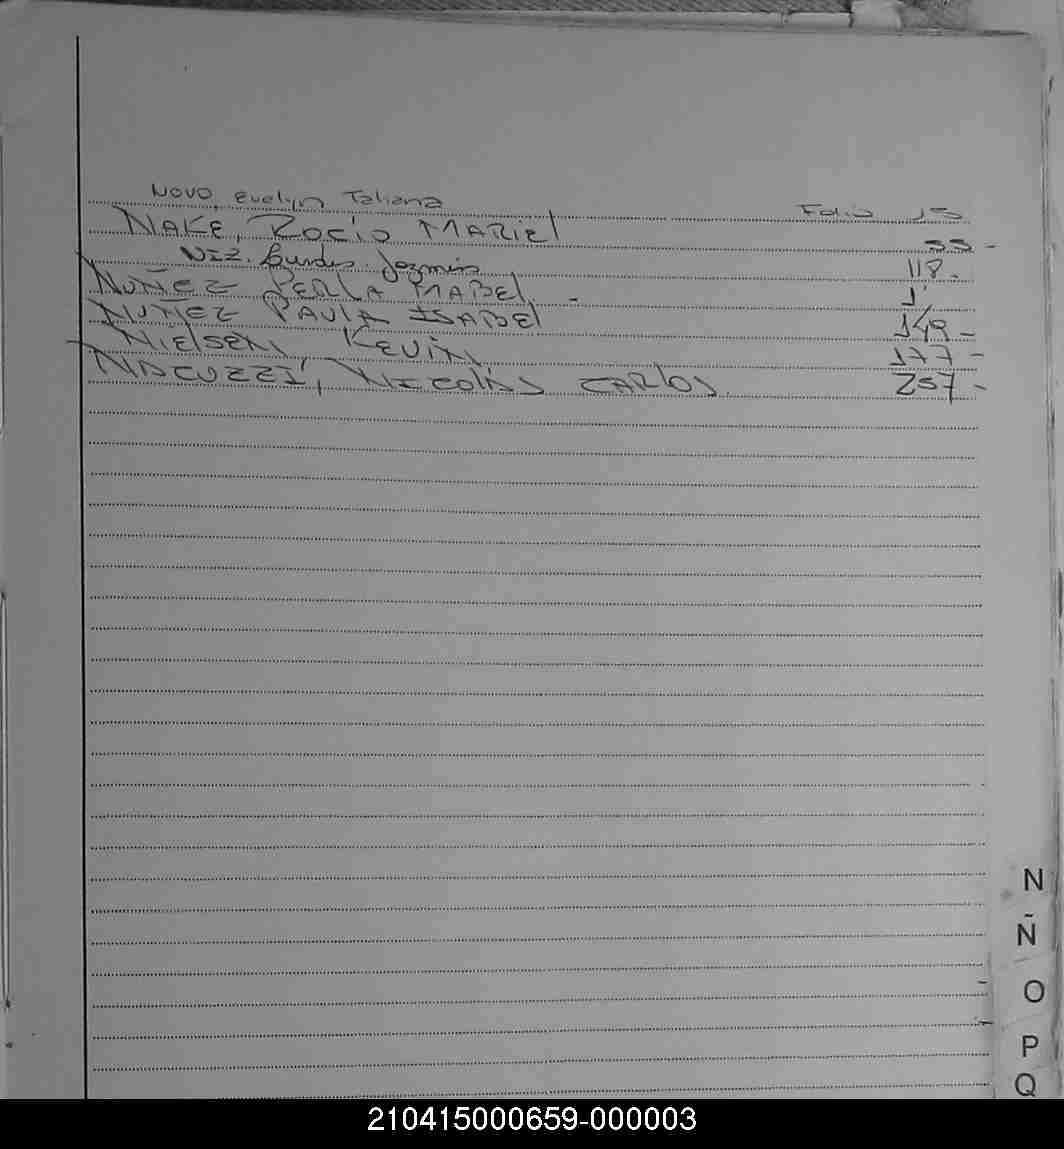 Novo, Evelyn Tatiana Folio 15
NAKE, ROCÍO MARIEL 55-
NIZ. Jazmin 118-
NUÑEZ PERLA MABEL. -
NUÑEZ PAULA ISABEL 149-
NIELSEN, KEVIN 177-
NICOLÁS CARLOS 257-
N
Ñ
O
P
Q
210415000659-000003